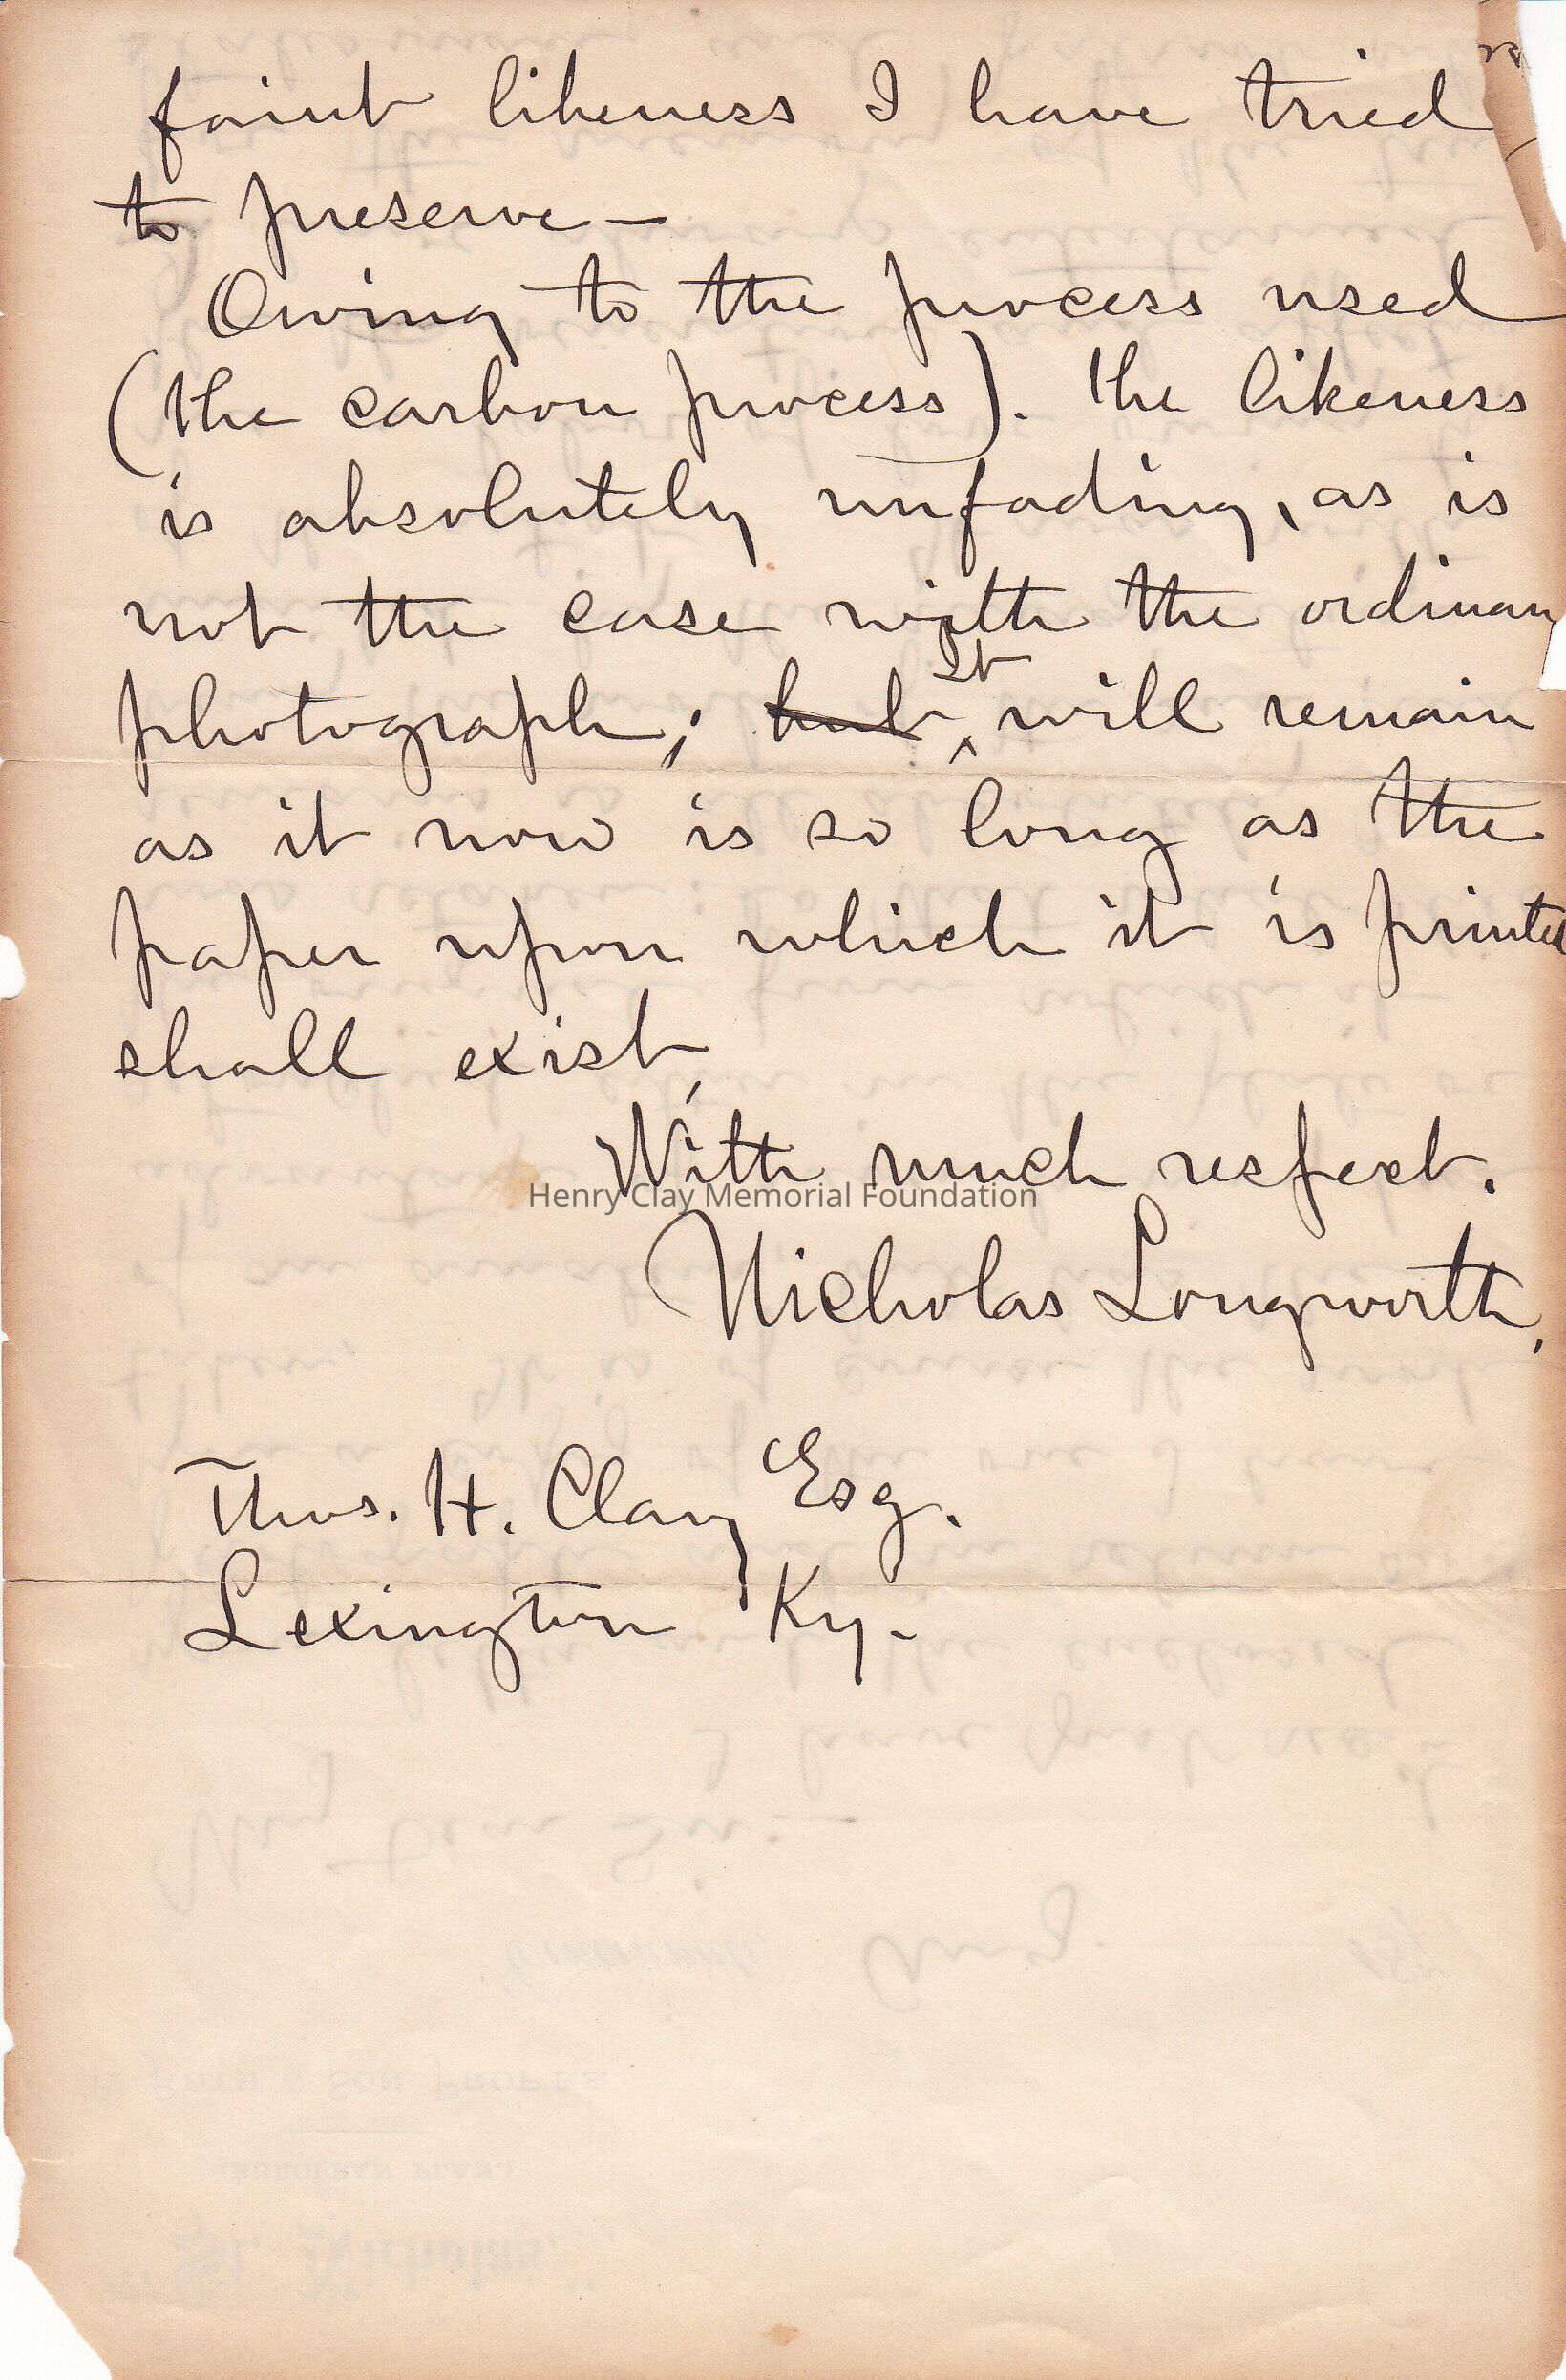 faint likeness I have tried
to preserve —
Owing to the process used
(the carbon process). the likeness
is absolutely unfading, as is
not the case with the ordinary
photograph; but It will remain
as it now is so long as the
paper upon which it is printed
shall exist,
With much respect.
Henry Clay Memorial Foundation
Nicholas Longworth,
Thos. H. Clay Esq.
Lexington Ky.